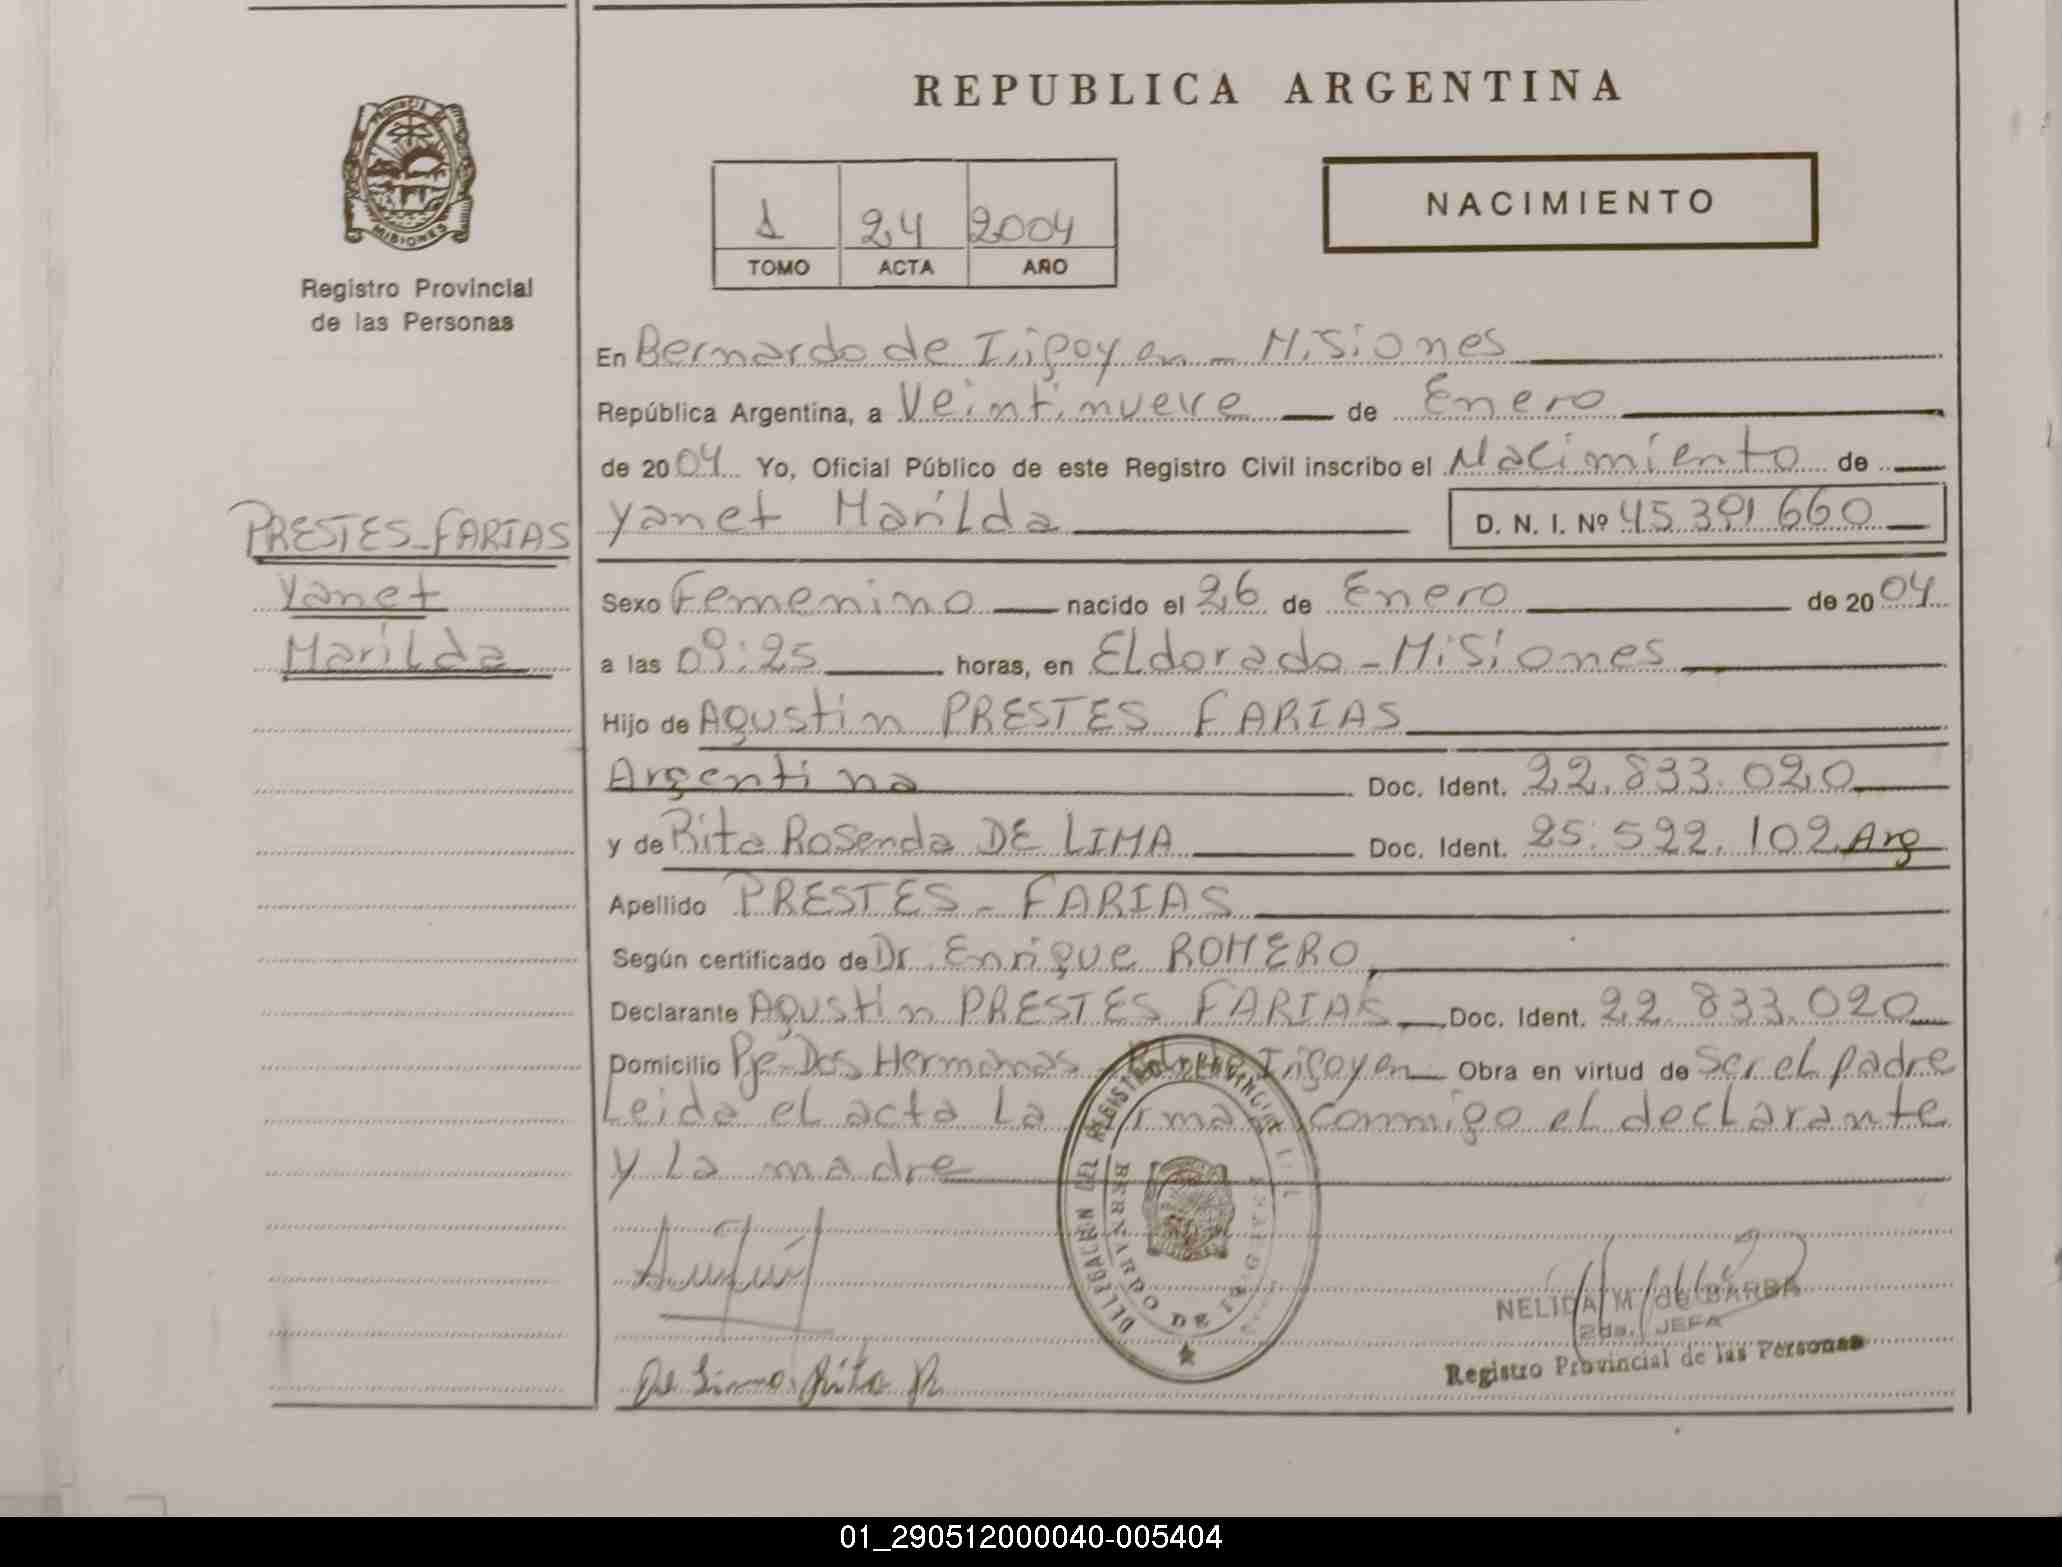 REPUBLICA ARGENTINA
PROVINCIA
MISIONES
Registro Provincial
de las Personas
1 24 2004
TOMO ACTA AÑO
NACIMIENTO
En Bernardo de Irigoyen - Misiones
República Argentina, a Veintinueve de Enero
de 2004 Yo, Oficial Público de este Registro Civil inscribo el Nacimiento de
PRESTES-FARIAS
Yanet
Marilda
Yanet Marilda D. N. I. Nº 45391660
Sexo Femenino nacido el 26 de Enero de 2004
a las 09:25 horas, en Eldorado - Misiones
Hijo de Agustin PRESTES FARIAS
Argentina Doc. Ident. 22.833.020
y de Rita Rosenda DE LIMA Doc. Ident. 25.522.102 Arg
Apellido PRESTES - FARIAS
Según certificado de Dr. Enrique ROMERO,
Declarante Agustin PRESTES FARIAS Doc. Ident. 22.833.020
Domicilio Pje Dos Hermanas - Bdo de Irigoyen Obra en virtud de Ser el padre
Leida el acta La firman conmigo el declarante
y La madre
DELEGACION DEL REGISTRO PROVINCIAL
BERNARDO DE
De Lima Rita R
NELIDA M de BARBA
2da. JEFA
Registro Provincial de las Personas
01_290512000040-005404